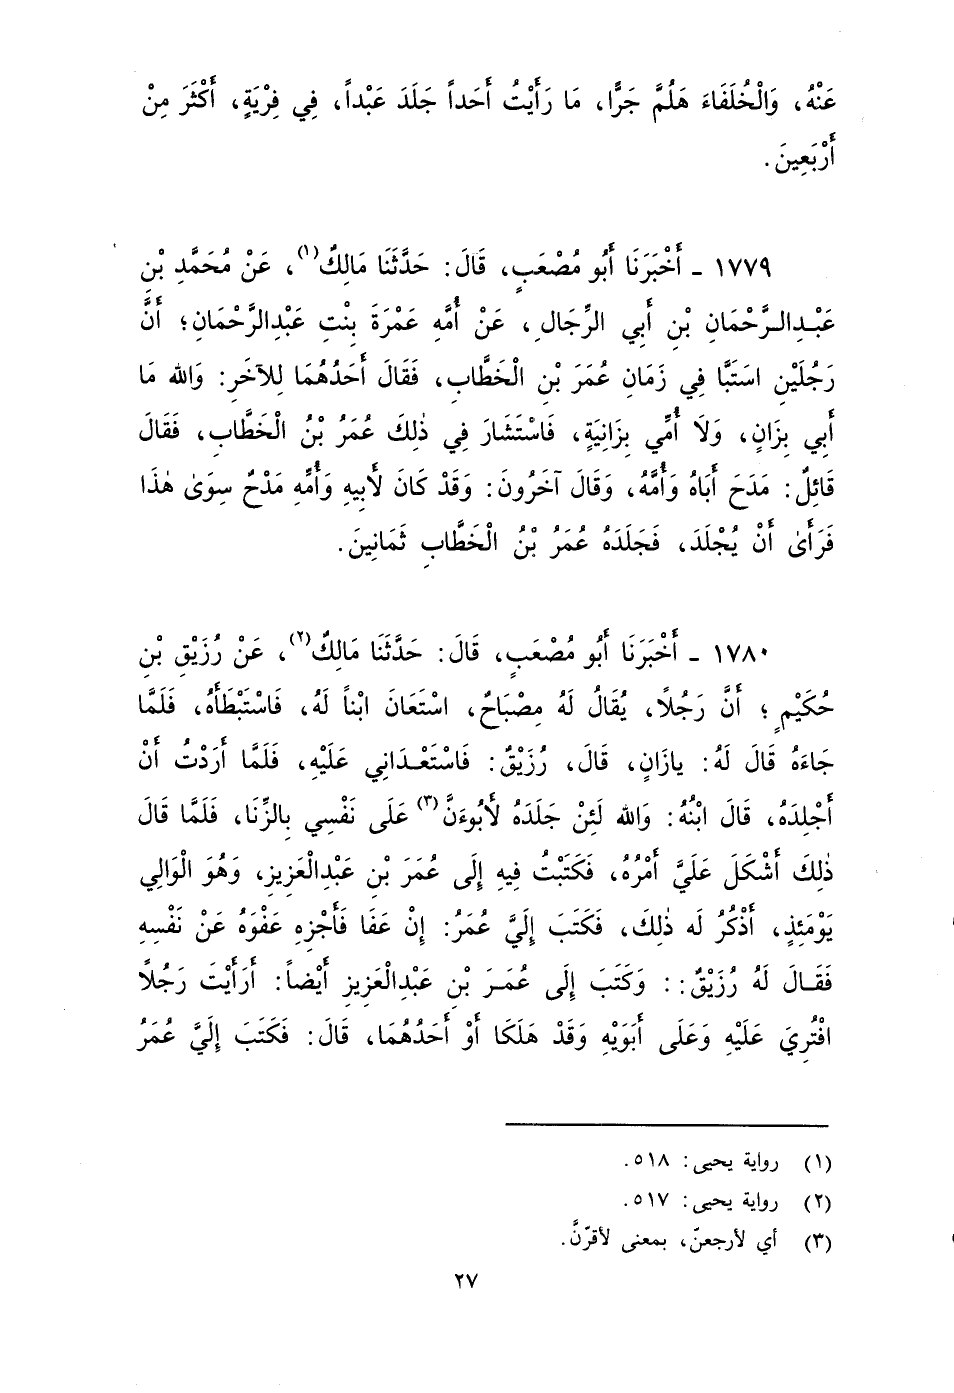 عَنْهُ، وَالْخُلَفَاءَ هَلُمَّ جَرًّا، مَا رَأَيْتُ أَحَداً جَلَدَ عَبْداً، فِي فِرْيَةٍ، أَكْثَرَ مِنْ
أَرْبَعِينَ.
١٧٧٩ - أَخْبَرَنَا أَبُو مُصْعَبٍ، قَالَ: حَدَّثَنَا مَالِكٌ(١)، عَنْ مُحَمَّدِ بْنِ
عَبْدِالرَّحْمَانِ بْنِ أَبِي الرِّجَالِ، عَنْ أُمِّهِ عَمْرَةَ بِنْتِ عَبْدِالرَّحْمَانِ؛ أَنَّ
رَجُلَيْنِ اسَتَبَّا فِي زَمَانِ عُمَرَ بْنِ الْخَطَّابِ، فَقَالَ أَحَدُهُمَا لِلآخَرِ: وَالله مَا
أَبِي بِزَانٍ، وَلَا أُمِّي بِزَانِيَةٍ، فَاسْتَشَارَ فِي ذٰلِكَ عُمَرُ بْنُ الْخَطَّابِ، فَقَالَ
قَائِلٌ: مَدَحَ أَبَاهُ وَأُمَّهُ، وَقَالَ آخَرُونَ: وَقَدْ كَانَ لأَبِيهِ وَأُمِّهِ مَدْحٌ سِوَىٰ هٰذَا
فَرَأَىٰ أَنْ يُجْلَدَ، فَجَلَدَهُ عُمَرُ بْنُ الْخَطَّابِ ثَمَانِينَ.
١٧٨٠ - أَخْبَرَنَا أَبُو مُصْعَبٍ، قَالَ: حَدَّثَنَا مَالِكٌ(٢)، عَنْ رُزَيْقِ بْنِ
حُكَيْمٍ؛ أَنَّ رَجُلًا، يُقَالُ لَهُ مِصْبَاحٌ، اسْتَعَانَ ابْناً لَهُ، فَاسْتَبْطَأَهُ، فَلَمَّا
جَاءَهُ قَالَ لَهُ: يازَانِ، قَالَ، رُزَيْقٌ: فَاسْتَعْدَانِي عَلَيْهِ، فَلَمَّا أَرَدْتُ أَنْ
أَجْلِدَهُ، قَالَ ابْنُهُ: وَالله لَئِنْ جَلَدَهُ لأَبُوءَنَّ(٣) عَلَى نَفْسِي بِالزِّنَا، فَلَمَّا قَالَ
ذٰلِكَ أَشْكَلَ عَلَيَّ أَمْرُهُ، فَكَتَبْتُ فِيهِ إِلَى عُمَرَ بْنِ عَبْدِالْعَزِيزِ، وَهُوَ الْوَالِي
يَوْمَئِذٍ، أَذْكُرُ لَه ذٰلِكَ، فَكَتَبَ إِلَيَّ عُمَرُ: إِنْ عَفَا فَأَجْزِهِ عَفْوَهُ عَنْ نَفْسِهِ
فَقَالَ لَهُ رُزَيْقٌ:: وَكَتَبَ إِلَى عُمَرَ بْنِ عَبْدِالْعَزِيزِ أَيْضاً: أَرَأَيْتَ رَجُلًا
افْتُرِيَ عَلَيْهِ وَعَلَى أَبَوَيْهِ وَقَدْ هَلَكَا أَوْ أَحَدُهُمَا، قَالَ: فَكَتَبَ إِلَيَّ عُمَرُ
(١) رواية يحيى: ٥١٨.
(٢) رواية يحيى: ٥١٧.
(٣) أي لأرجعنّ، بمعنى لأقرّنَّ.
٢٧